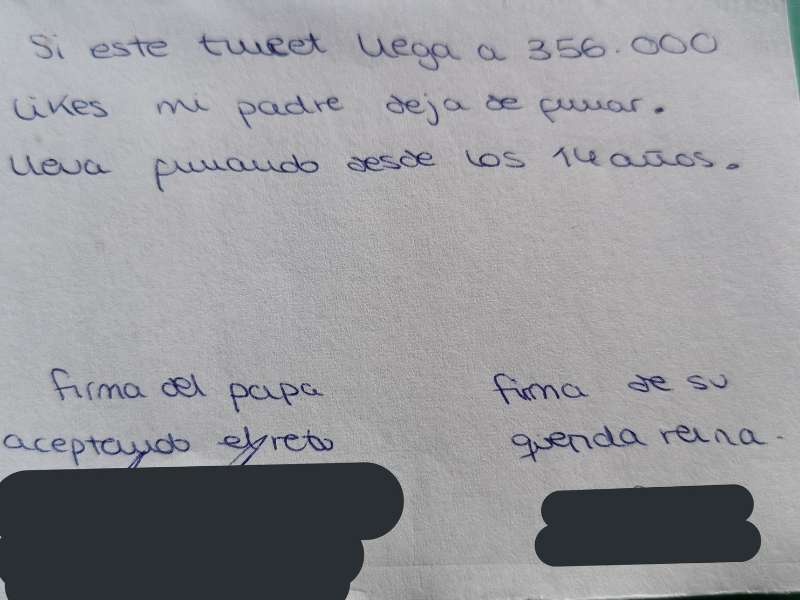 Si este tweet llega a 356.000
likes mi padre deja de fumar.
lleva fumando desde los 14 años.
firma del papa
aceptando el reto
firma de su
querida reina.